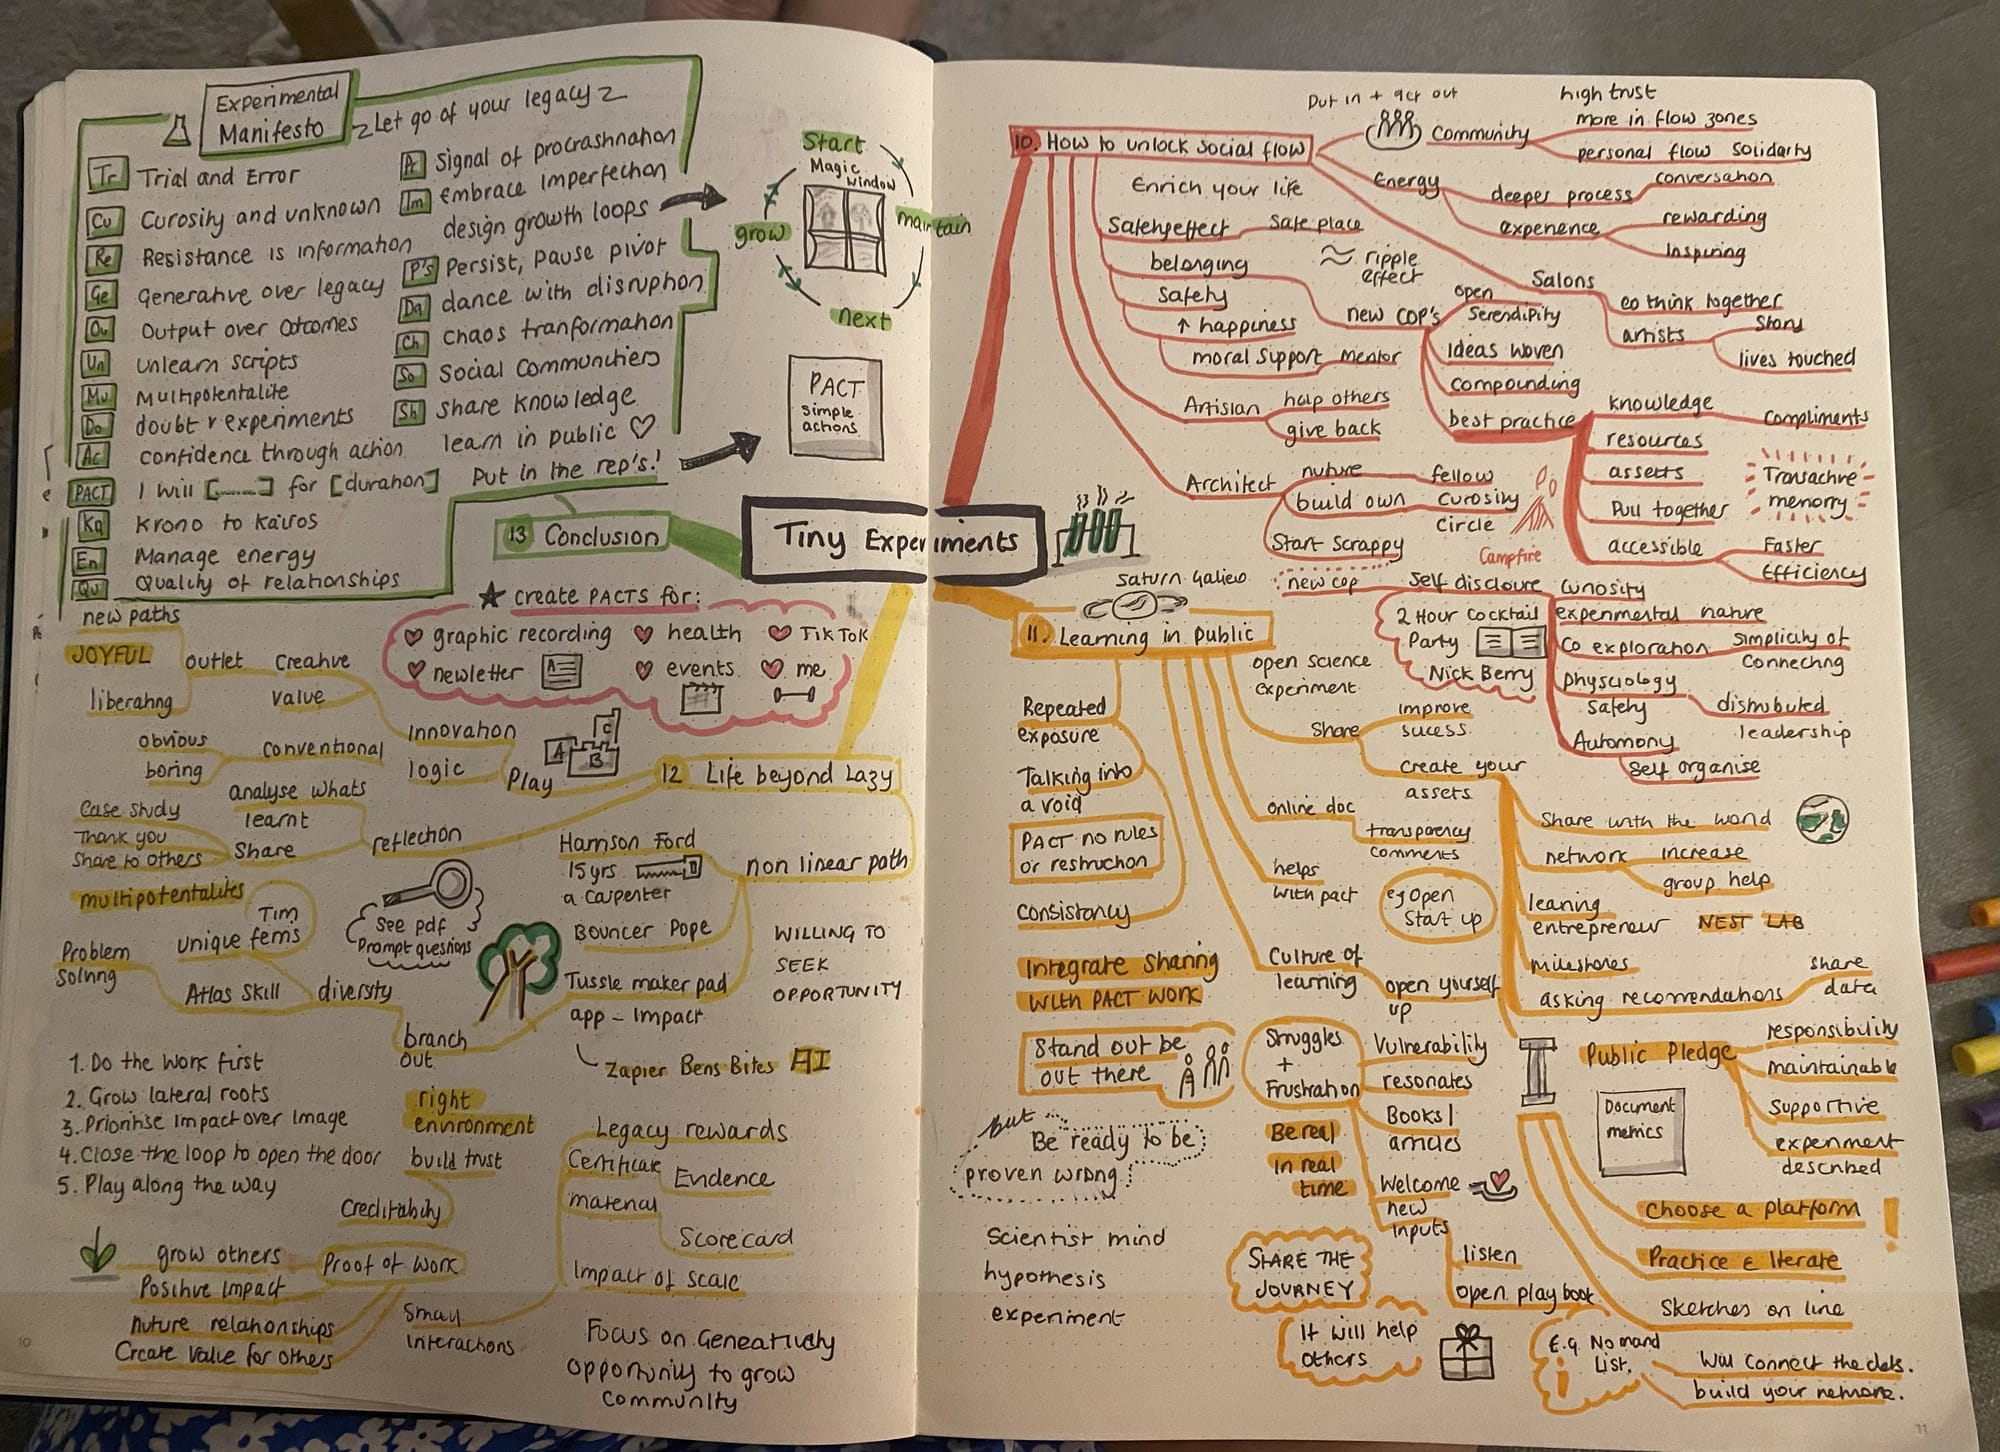 Experimental
Manifesto
Let go of your legacy
Tr Trial and Error
Cu Curosity and unknown
Re Resistance is information
Ge Generative over legacy
Ou Output over Outcomes
Un unlearn scripts
Mu Multipotentalite
Do doubt experiments
Ac confidence through action
PACT I will [......] for [duration]
Ka Krono to Kairos
En Manage energy
Qu Quality of relationships
A Signal of procrastination
Im embrace imperfection
design growth loops
P's Persist, pause pivot
Da dance with disruption
Ch Chaos tranformation
So Social Communitiers
Sh share knowledge
learn in public
Put in the rep's!
Start
Magic
window
maintain
next
grow
PACT
simple
actions
Tiny Experiments
13 Conclusion
create PACTS for:
graphic recording
health
TikTok
newletter
events
me
12 Life beyond Lazy
Play
A B C
innovation
logic
Creative
value
outlet
new paths
JOYFUL
liberating
conventional
obvious
boring
reflection
analyse whats
learnt
Share
Case study
Thank you
Share to others
See pdf
Prompt questions
non linear path
Harrison Ford
15yrs
a carpenter
Bouncer Pope
Tussle maker pad
app - Impact
Zapier Bens Bites AI
WILLING TO
SEEK
OPPORTUNITY
multipotentalites
Tim
unique
Problem
Solving
Atlas Skill
diversty
branch
out
1. Do the work first
2. Grow lateral roots
3. Prioritise impact over image
4. Close the loop to open the door
5. Play along the way
right
environment
build trust
Creditability
Proof of work
grow others
Positive impact
nuture relationships
Create value for others
Small
interactions
Legacy rewards
Certificate
material
Evidence
Scorecard
Impact of scale
Focus on Generatively
opportunity to grow
community
10
10. How to unlock social flow
Enrich your life
Put in + get out
Community
high trust
more in flow zones
personal flow solidarity
Energy
deeper process
conversation
experience
rewarding
inspiring
Salons
co think together
artists
Story
lives touched
Safety effect
Safe place
belonging
Safety
↑ happiness
moral support mentor
ripple
effect
new COP's
open
Serendipity
Ideas woven
compounding
best practice
Knowledge
Compliments
resources
assetts
Pull together
accessible
Faster
Efficiency
Transactive
memory
Artisian
help others
give back
Architect
nuture
fellow
build own
curosity
circle
Start Scrappy
Campfire
new cop
Self discloure
Curiosity
experimental nature
Co exploration
Simplicity of
Connecting
physciology
safety
distributed
leadership
Automony
Self organise
2 Hour Cocktail
Party
Nick Berry
Saturn Galieo
11. Learning in public
Repeated
exposure
Talking into
a void
PACT no rules
or restruction
Consistancy
Integrate sharing
with PACT work
Stand out be
out there
But
Be ready to be
proven wrong
Scientist mind
hypothesis
experiment
open science
experiment
Share
improve
sucess
create your
assets
online doc
transparency
comments
helps
with pact
eg Open
Start up
Culture of
learning
open yourself
up
Struggles
+
Frustration
Vulnerability
resonates
Books/
articles
Welcome
new
inputs
Be real
in real
time
listen
open play book
SHARE THE
JOURNEY
It will help
others
Share with the world
network
increase
group help
learning
entrepreneur
NEST LAB
milestones
asking recomendations
share
data
Public Pledge
responsibility
maintainable
Supportive
experiment
described
Document
metrics
Choose a platform !
Practice & Iterate
Sketches on line
E.g. Nomand
List.
Will connect the dots.
build your network.
11